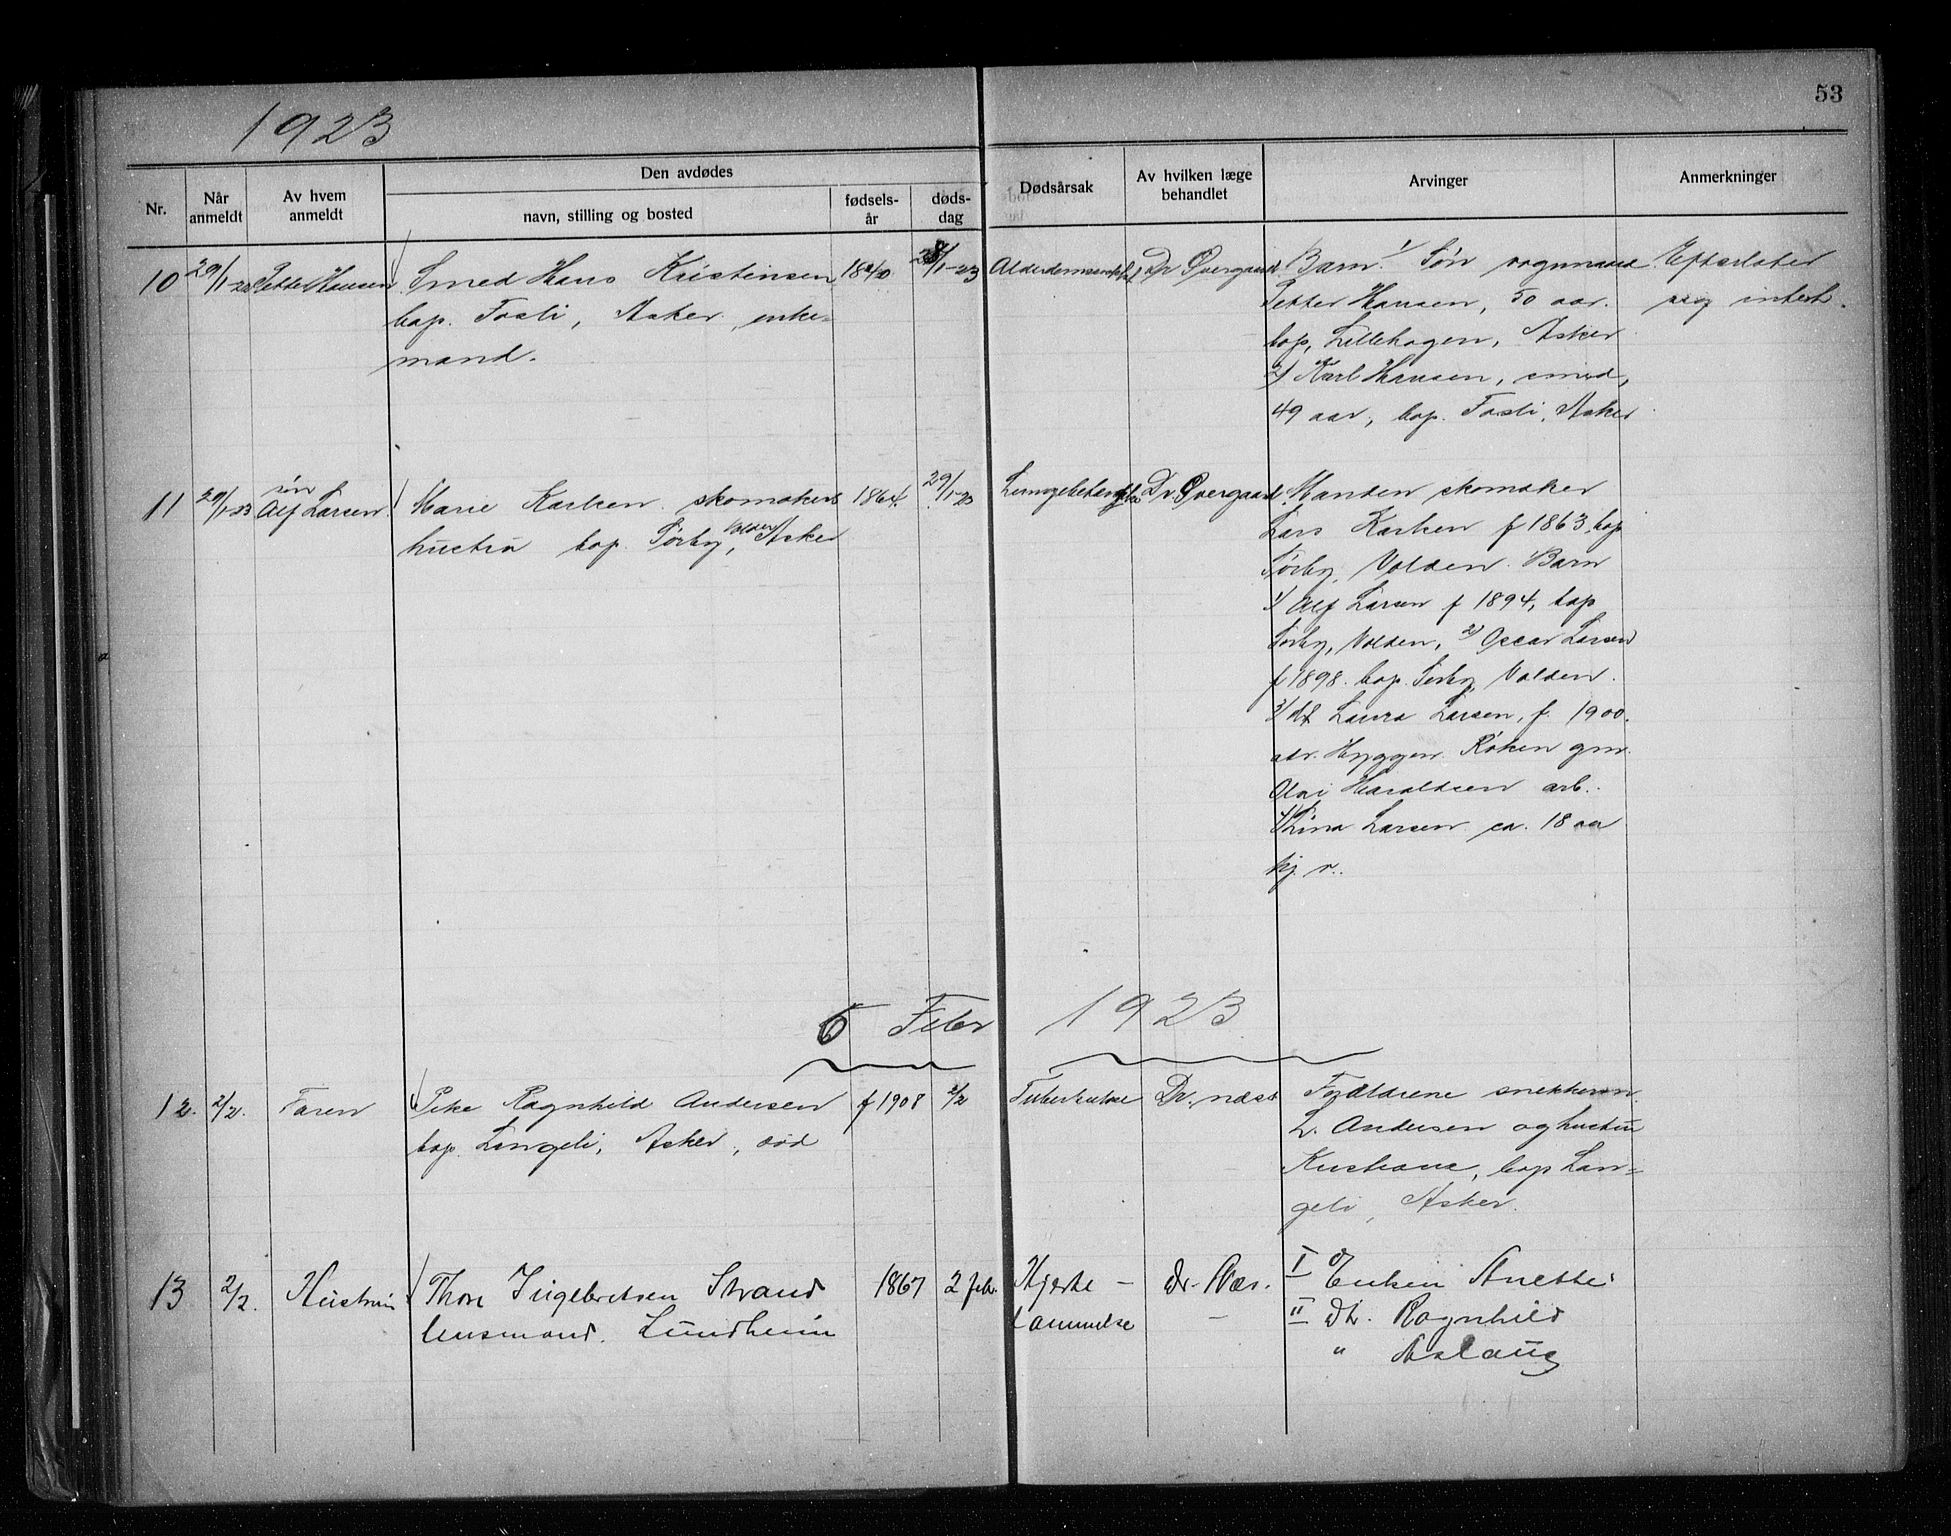 53
1923
Nr.
Når anmeldt
Av hvem anmeldt
Den avdødes
navn, stilling og bosted
fødsels-år
døds-dag
Dødsårsak
Av hvilken læge behandlet
Arvinger
Anmerkninger
10
29/1-23
Petter Hansen
Smed Hans Kristensen
bop. Fosli, Asker, enke=
mand.
1840
28/1-23
Dr Øvergaard
Barn: 1/ Søn
Petter Hansen, 50 aar.
bop, Lillehagen, Asker
2/ Karl Hansen, smed,
49 aar, bop. Fosli, Asker
Efterlater
sig intet.
11
29/1-23
søn
Alf Larsen.
Marie Karlsen skomakers
hustru bop. Sørby, Volden Asker
1864.
29/1-23
Lungebetændelse
Dr. Øvergaard
Manden skomaker
Lars Karlsen f 1863, bop
Sørby, Volden. Barn
1/ Alf Larsen f 1894, bop
Sørby, Volden, 2/ Oscar Larsen
f 1898. bop. Sørby, Volden.
3/ dt Laura Larsen, f. 1900.
adr. Hyggen. Røken gm.
Olai Haraldsen arb.
4/ Lina Larsen ca. 18 aar
hj. v.
6 Febr 1923
12.
2/2.
Faren
Pike Ragnhild Andersen
bop. Langeli, Asker,
f 1908
2/2
Tuberkulose
Dr. næss
Forældrene
L. Andersen og hustru
Kristiane, bop Lan=
geli, Asker.
13
2/2.
Hustruen
Thore Ingebretsen Strand
lensmand. Lundheim
1867
2 febr.
Hjerte -
lammelse
Dr. Næs.
-
I Enken Anette
II Dt. Ragnhild
" Aslaug